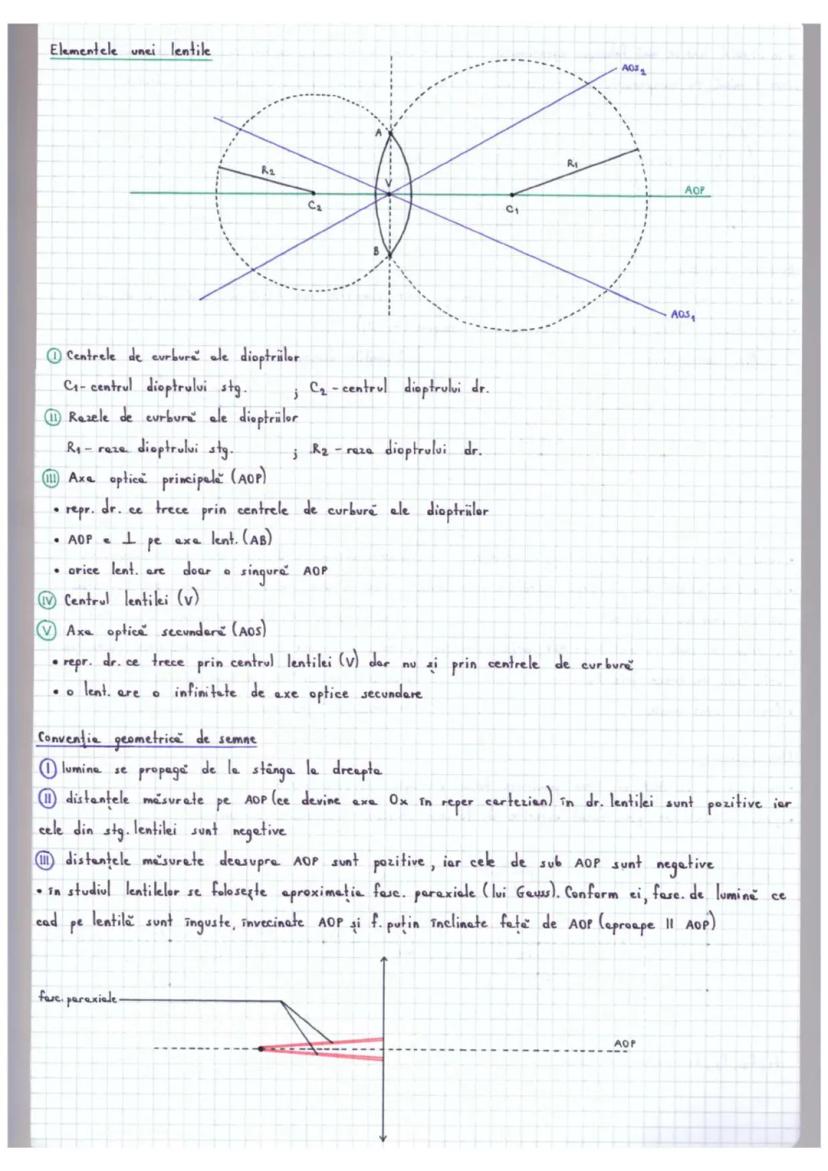 Elementele unei lentile
AOS₂
A
R₂
R₁
V
AOP
C₂
C₁
B
AOS₁
I Centrele de curbură ale dioptriilor
C₁ - centrul dioptrului stg. ; C₂ - centrul dioptrului dr.
II Razele de curbură ale dioptriilor
R₁ - raza dioptrului stg. ; R₂ - raza dioptrului dr.
III Axa optică principală (AOP)
• repr. dr. ce trece prin centrele de curbură ale dioptriilor
• AOP e ⊥ pe axa lent. (AB)
• orice lent. are doar o singură AOP
IV Centrul lentilei (V)
V Axa optică secundară (AOS)
• repr. dr. ce trece prin centrul lentilei (V) dar nu și prin centrele de curbură
• o lent. are o infinitate de axe optice secundare
Convenția geometrică de semne
I lumina se propagă de la stânga la dreapta
II distanțele măsurate pe AOP (ce devine axa Ox în reper cartezian) în dr. lentilei sunt pozitive iar
cele din stg. lentilei sunt negative
III distanțele măsurate deasupra AOP sunt pozitive, iar cele de sub AOP sunt negative
• în studiul lentilelor se folosește aproximația fasc. paraxiale (lui Gauss). Conform ei, fasc. de lumină ce
cad pe lentilă sunt înguste, învecinate AOP și f. puțin înclinate față de AOP (aproape || AOP)
fasc. paraxiale
AOP